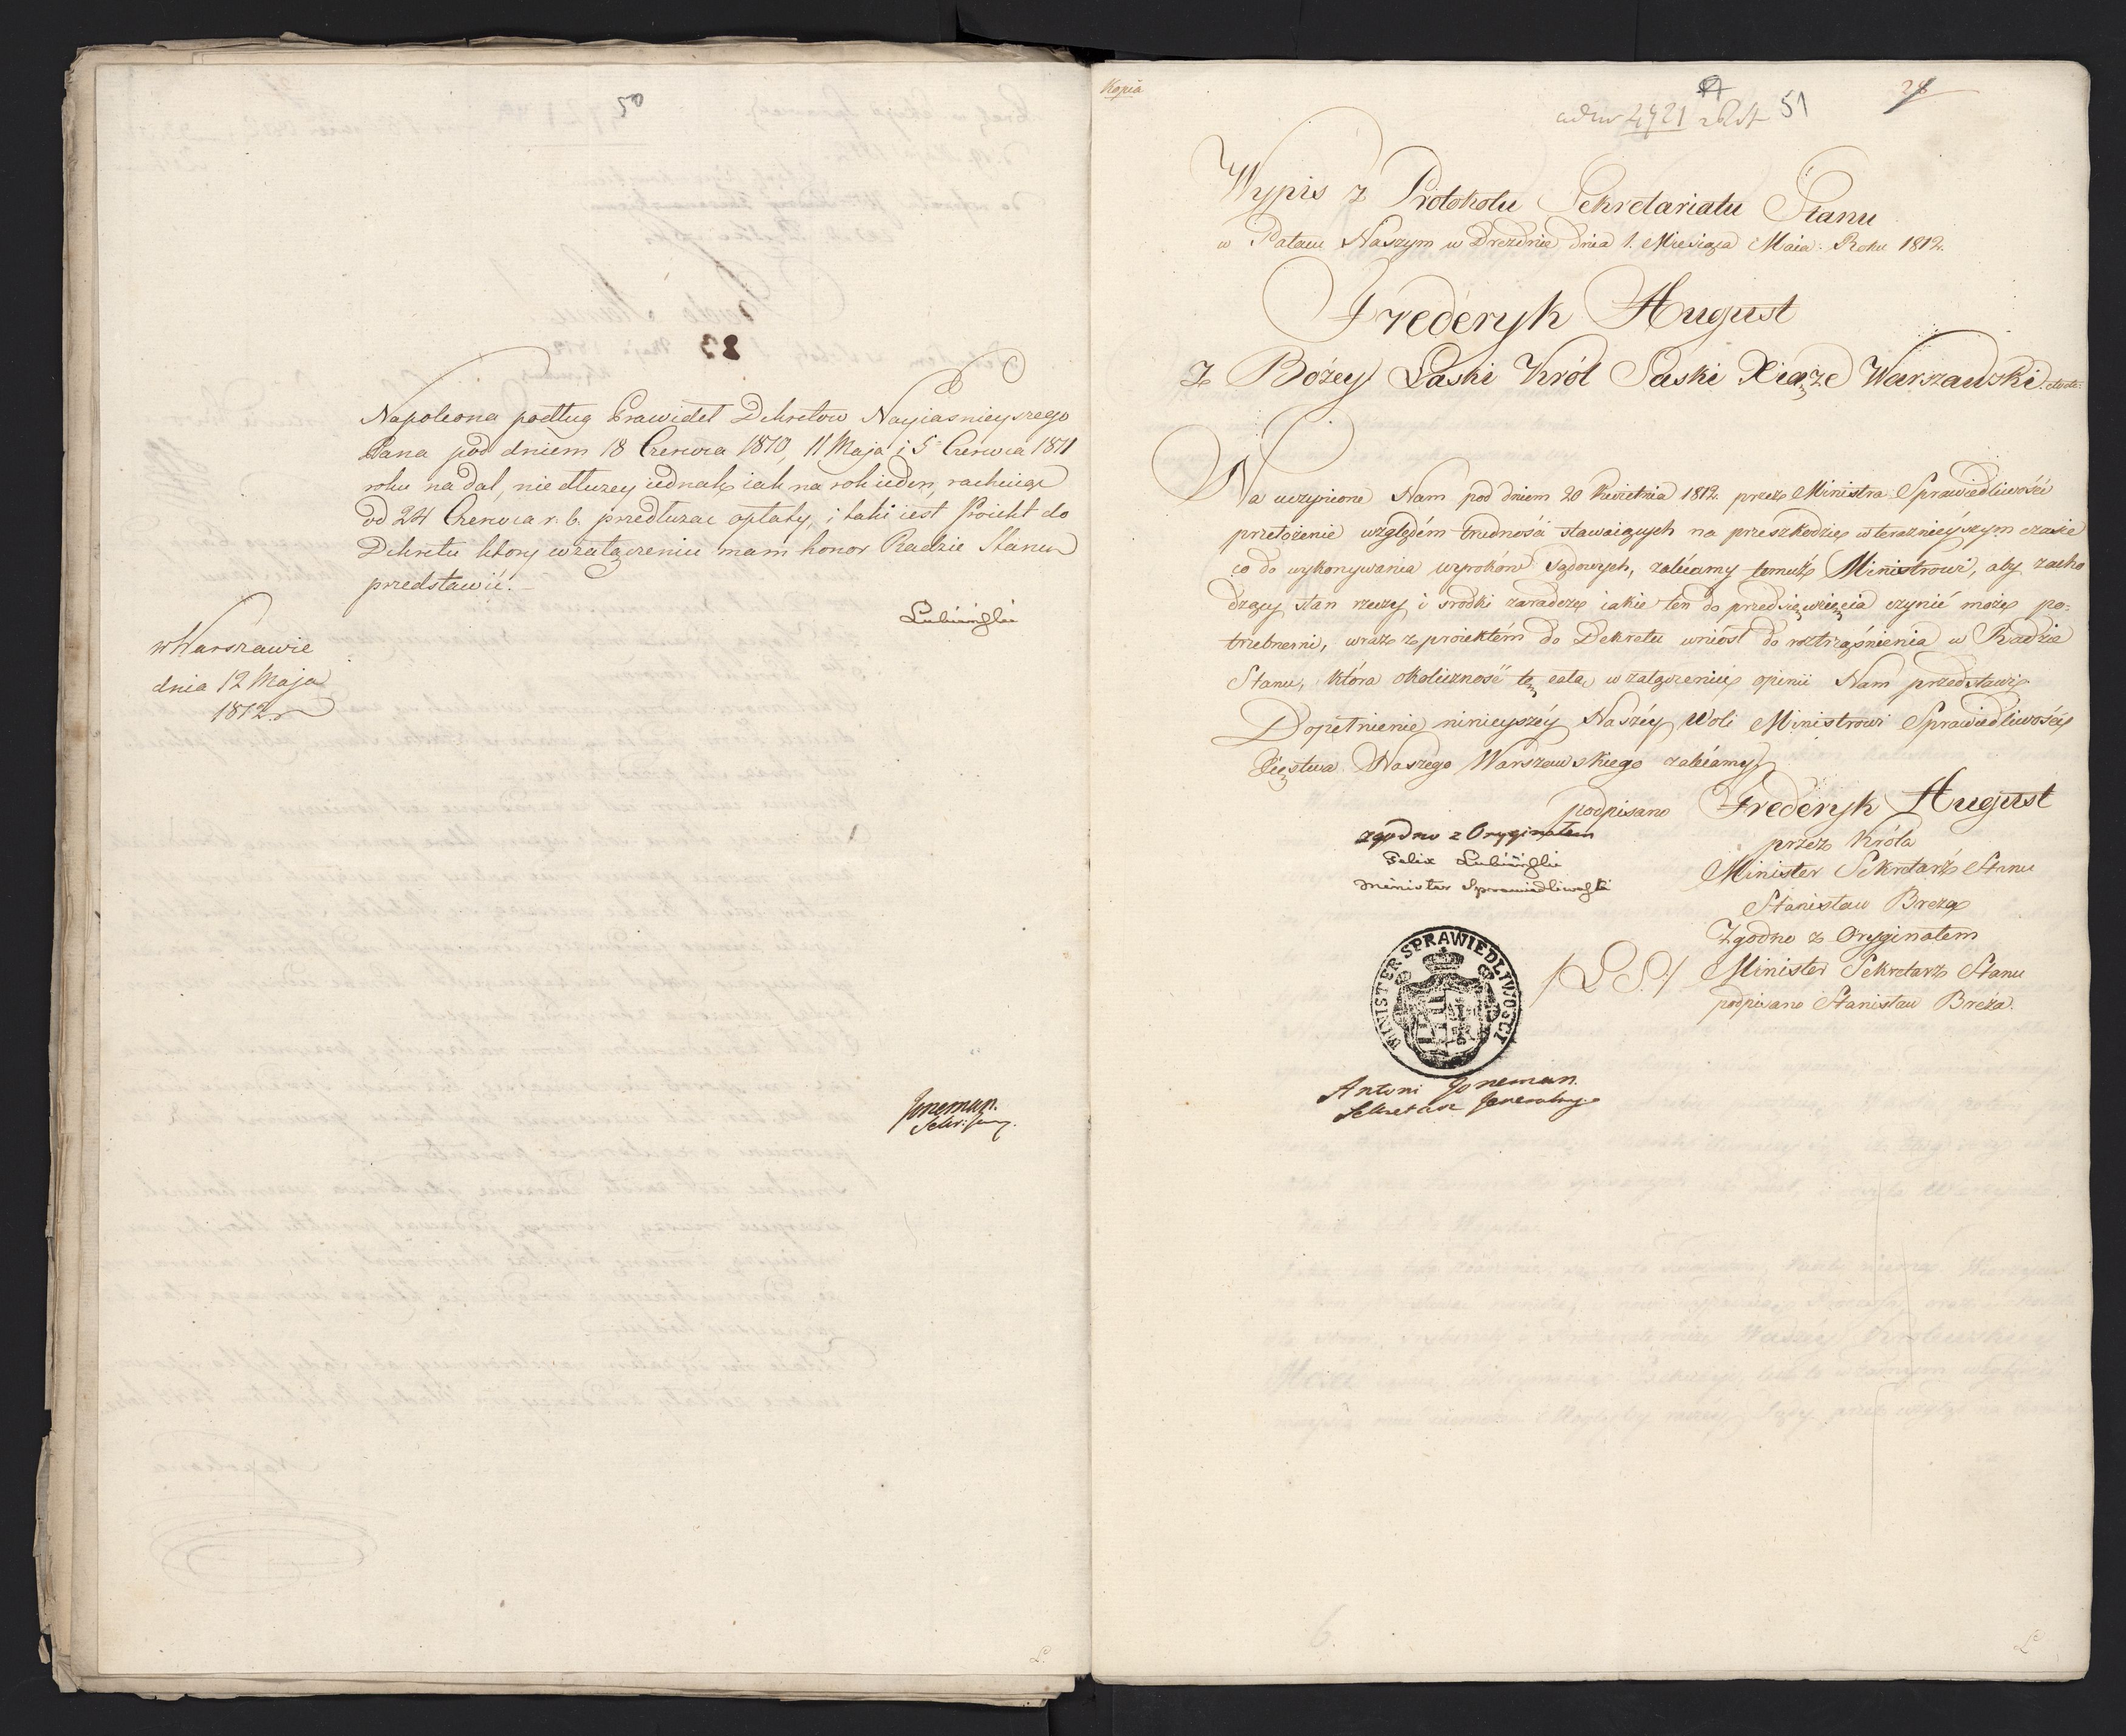 50
83
Napoleona podług Prawideł Dekretow Nayiasnieyszego
Pana pod dniem 18 Czerwca 1810, 11 Maja i 5 Czerwca 1811
roku nadal, nie dłużey iednak iak na rok ieden, rachuiąc
od 24 Czerwca r. b. przedłużać opłaty, i taki iest Proiekt do
Dekretu ktory w załączeniu mam honor Radzie Stanu
przedstawić. –
Lubieński
w Warszawie
dnia 12 Maja
1812 r
Joneman.
Sekr: Jen.
Kopia
ad Nr 2421 51
28
Wypis z Protokołu Sekretariatu Stanu
w Pałacu Naszym w Dreznie dnia 1. Miesiąca Maia Roku 1812.
Frederyk August
Z Bożey Łaski Król Saski Xiąże Warszawski etc. etc.
Na uczynione Nam pod dniem 20 Kwietnia 1812. przez Ministra Sprawiedliwości
przełożenie względem trudności stawaiących na przeszkodzie w teraznieyszym czasie
co do wykonywania wyroków Sądowych, zalécamy temuż Ministrowi, aby zacho
dzący stan rzeczy i srodki zaradcze iakie ten do przedsięwzięcia czynić może po=
trzebnemi, wraz z proiektém do Dekretu wniósł do roztrząśnienia w Radzie
Stanu, która okoliczność tę całą w załączeniu opinii Nam przedstawi
Dopełnienie ninieyszéy Naszéy Woli Ministrowi Sprawiedliwości
Xięstwa Naszego Warszawskiego zalécamy
podpisano Frederyk August
przez Króla
Minister Sekretarz Stanu
Stanisław Breza
Zgodno z Oryginałem
/L.S./ Minister Sekretarz Stanu
podpisano Stanisław Breza.
zgodno z Oryginałem
Felix Lubieński
Minister Sprawiedliwości
MINISTER SPRAWIEDLIWOSCI
Antoni Joneman.
Sekretarz Jeneralny.
6.